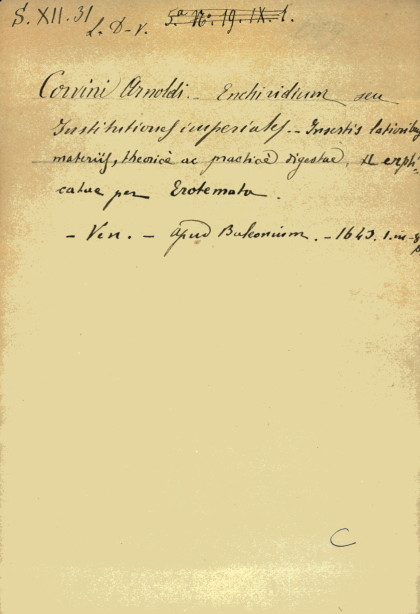 S. XII. 31
L. D. v. 5.ª N.º 19. IX. 1.
Corvini Arnoldi. - Enchiridium seu
Institutiones imperiales. - Insertis latioribus
materiis, theoricè ac practicè digestae, et expli-
catae per Erotemata.
- Ven. - Apud Baleonium. - 1643. 1. in-8
C